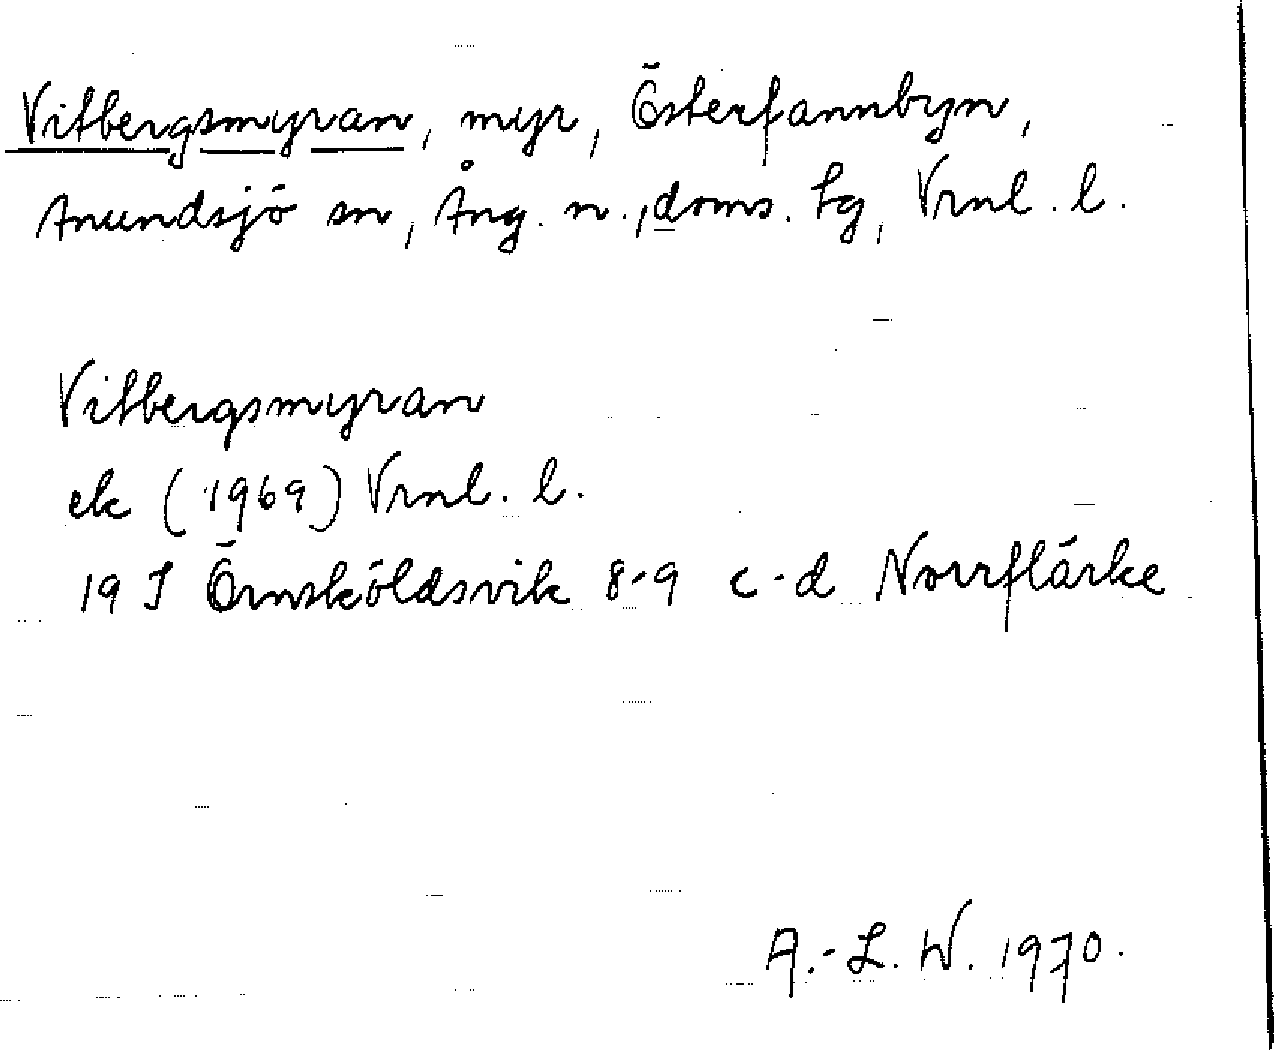 Vitbergsmyran, myr, Österfannbyn,
Anundsjö sn, Ång. n., doms. lg, Vrnl. l.
Vitbergsmyran
ek (1969) Vrnl. l.
19 I Örnsköldsvik 8-9 c-d Norrflärke
A.-L. W. 1970.